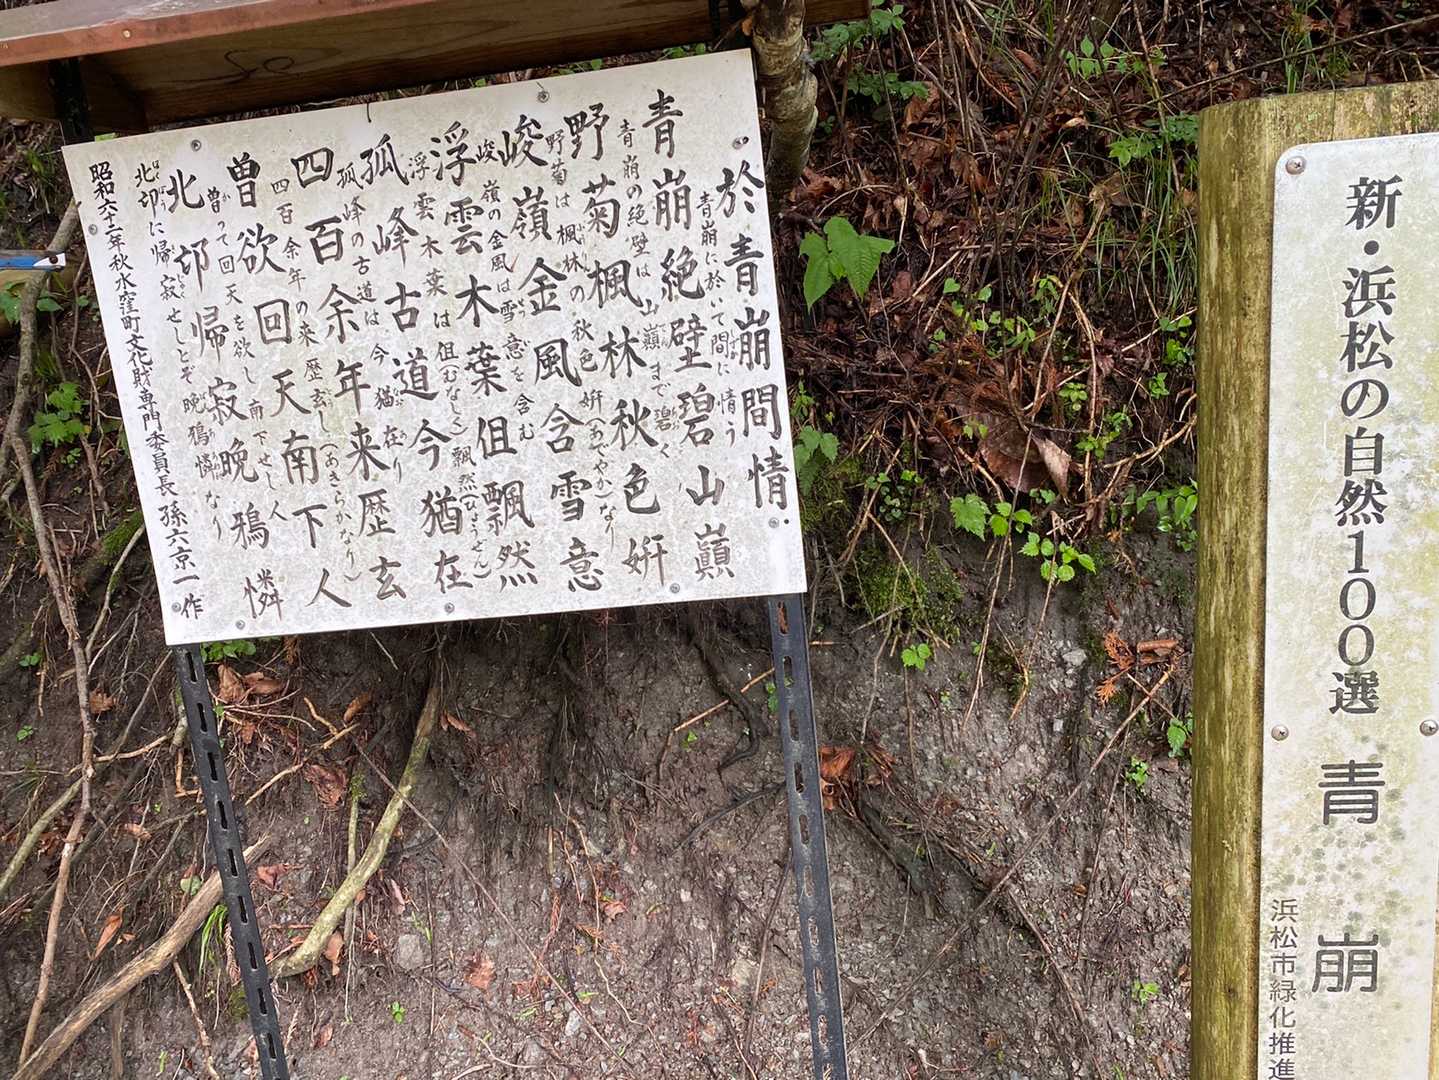 於青崩間情
青崩に於いて間に情う
青崩絶壁碧山巓
青崩の絶壁は山巓まで碧く
野菊楓林秋色妍
野菊は楓林の秋色妍(あでやか)なり
峻嶺金風含雪意
峻嶺の金風は雪意を含む
浮雲木葉但飄然
浮雲木葉は但(むなしく)飄然(ひょうぜん)
孤峰古道今猶在
孤峰の古道は今猶在り
四百余年来歴玄
四百余年の来歴玄し(あきらかなり)
曽欲回天南下人
曽って回天を欲し南下せし人
北邙帰寂晩鴉憐
北邙に帰寂せしとぞ晩鴉憐なり
昭和六十二年秋水窪町文化財専門委員長孫六京一作
新・浜松の自然100選
青崩
浜松市緑化推進